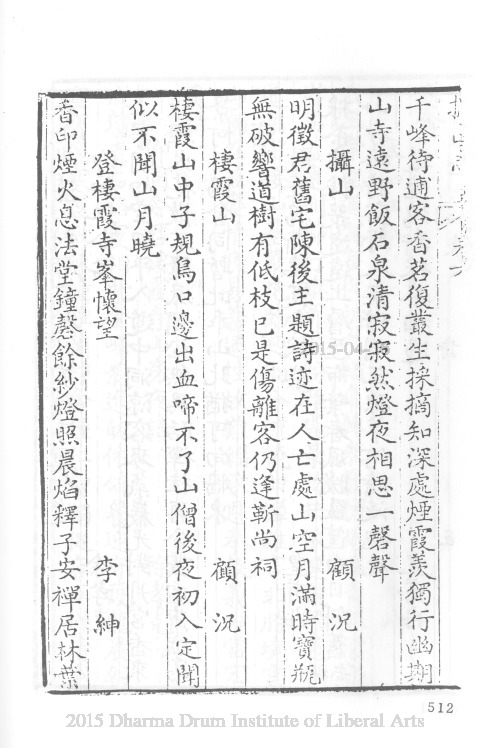 千峰待逋客香茗復叢生採摘知深處煙霞羨獨行幽期
山寺遠野飯石泉清寂寂然燈夜相思一磬聲
攝山 顧況
明徵君舊宅陳後主題詩迹在人亡處山空月滿時寶瓶
無破響道樹有低枝已是傷離客仍逢靳尚祠
棲霞山 顧況
棲霞山中子規鳥口邊出血啼不了山僧後夜初入定聞
似不聞山月曉
登棲霞寺峯懷望 李紳
香印煙火息法堂鐘磬餘紗燈照晨焰釋子安禪居林葉
512
2015-04-
2015 Dharma Drum Institute of Liberal Arts